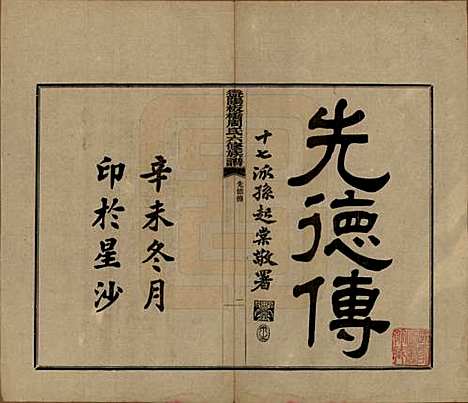 先德傳
十七派孫起棠敬署
益陽板橋周氏六修族譜
先德傳
一
辛未冬月
印於星沙